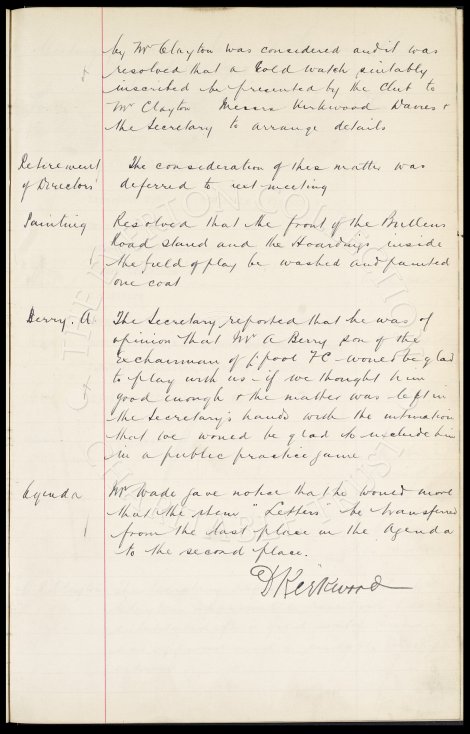 by Mr Clayton was considered and it was
resolved that a Gold watch suitably
inscribed be presented by the Club to
Mr Clayton Messrs Kirkwood Davies &
the Secretary to arrange details
Retirement of Directors
The consideration of this matter was
deferred to next meeting
Painting
Resolved that the front of the Bullens
Road stand and the Hoardings inside
the field of play be washed and painted
one coat
Berry. A
The Secretary reported that he was of
opinion that Mr A Berry son of the
Exchairman of L'pool FC would be glad
to play with us - if we thought him
good enough & the matter was left in
the Secretary's hands with the intimation
that we would be glad to include him
in a public practice game
Agenda
Mr Wade gave notice that he would move
that the item "Letters" be transferred
from the last place in the Agenda
to the second place.
D Kirkwood